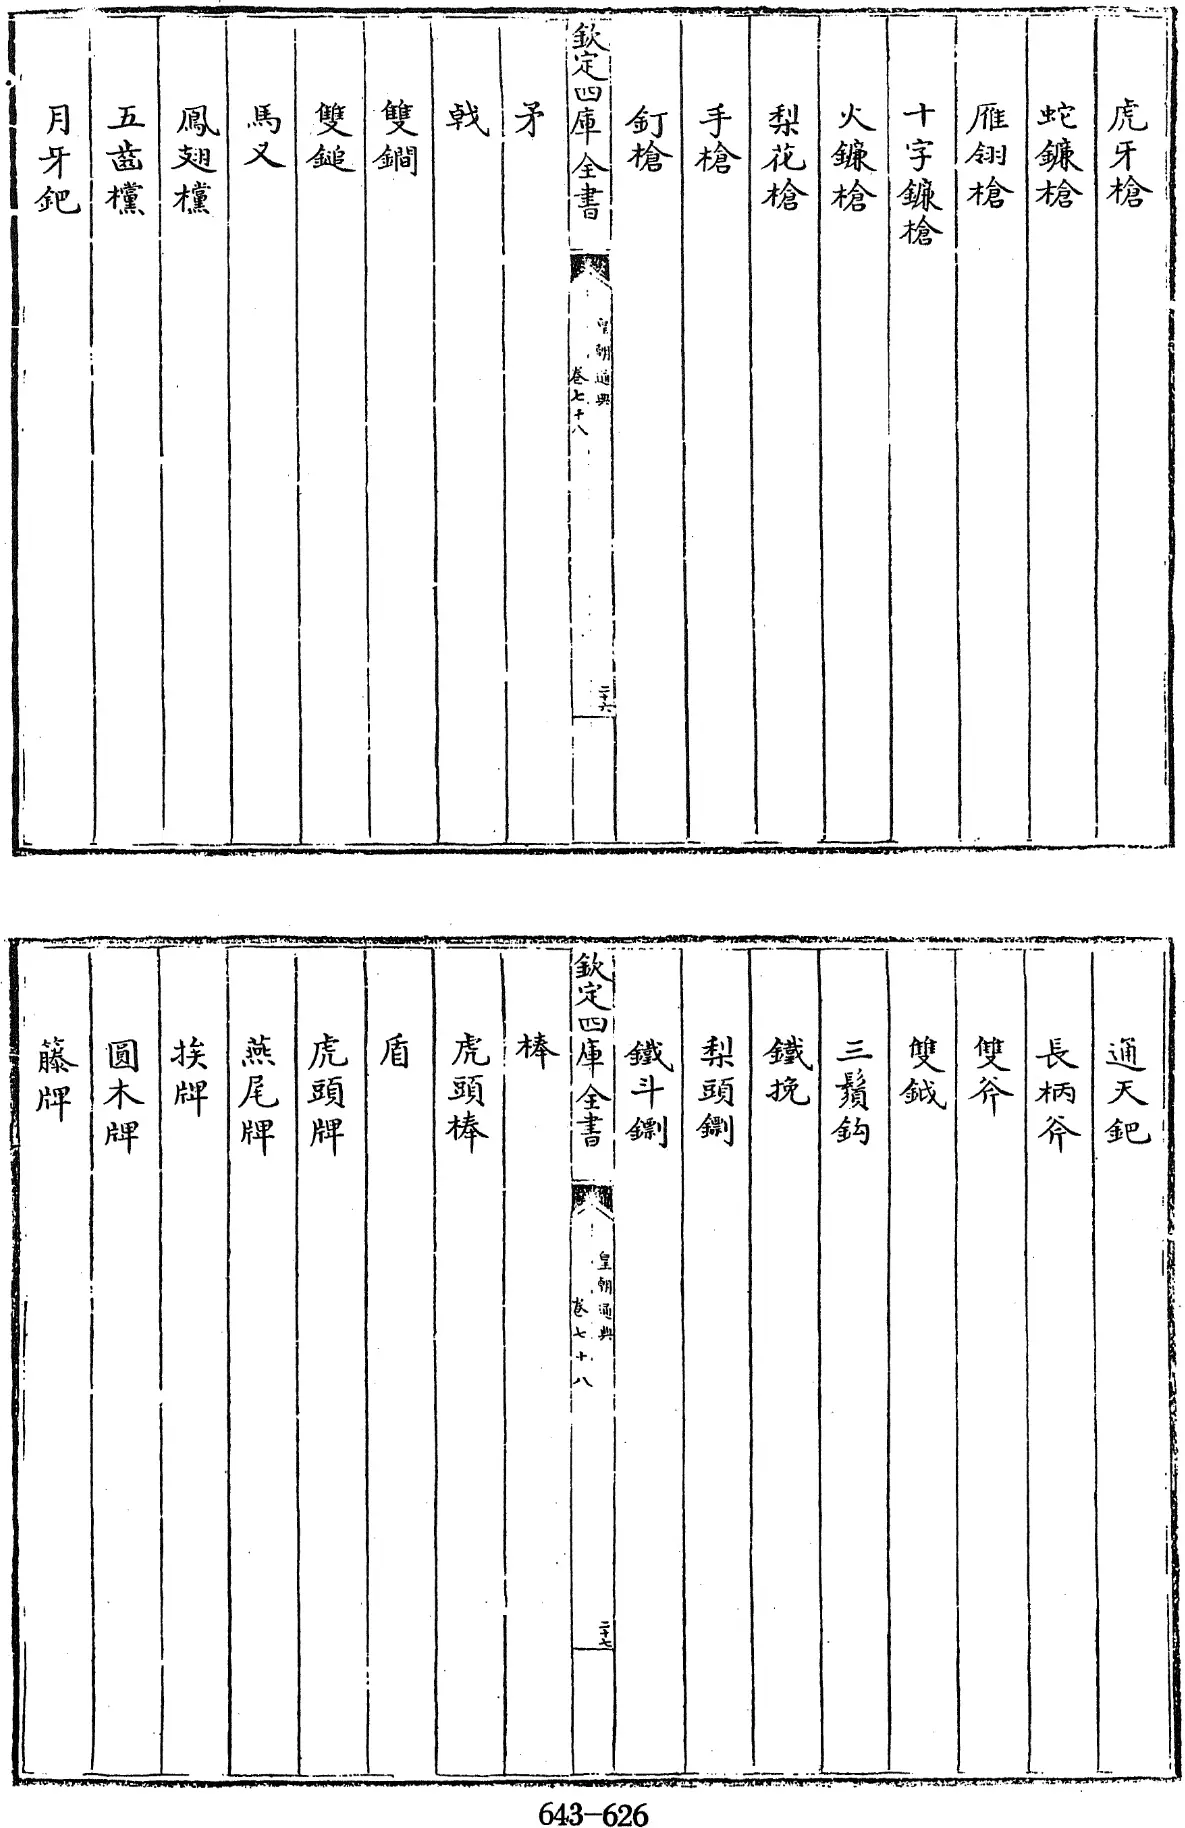 虎牙槍
蛇鐮槍
雁翎槍
十字鐮槍
火鐮槍
梨花槍
手槍
釘槍
欽定四庫全書
皇朝通典
卷七十八
二十六
矛
戟
雙鐧
雙鎚
馬叉
鳳翅欓
五齒欓
月牙鈀
通天鈀
長柄斧
雙斧
雙鉞
三鬚鈎
鐵挽
梨頭鏰
鐵斗鏰
欽定四庫全書
皇朝通典
卷七十八
二十七
棒
虎頭棒
盾
虎頭牌
燕尾牌
挨牌
圓木牌
藤牌
643-626